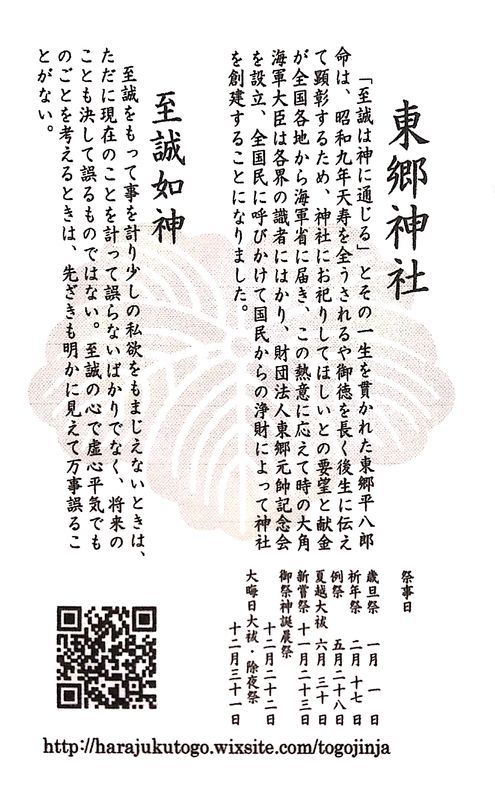 東郷神社
「至誠は神に通じる」とその一生を貫かれた東郷平八郎
命は、昭和九年天寿を全うされるや御徳を長く後生に伝え
て顕彰するため、神社にお祀りしてほしいとの要望と献金
が全国各地から海軍省に届き、この熱意に応えて時の大角
海軍大臣は各界の識者にはかり、財団法人東郷元帥記念会
を設立、全国民に呼びかけて国民からの浄財によって神社
を創建することになりました。
至誠如神
至誠をもって事を計り少しの私欲をもまじえないときは、
ただに現在のことを計って誤らないばかりでなく、将来の
ことも決して誤るものではない。至誠の心で虚心平気でも
のごとを考えるときは、先ざきも明かに見えて万事誤るこ
とがない。
祭事日
歳旦祭 一月 一日
祈年祭 二月 十七日
例祭 五月二十八日
夏越大祓 六月 三十日
新嘗祭 十一月二十三日
御祭神誕晨祭
十二月二十二日
大晦日大祓・除夜祭
十二月三十一日
http://harajukutogo.wixsite.com/togojinja